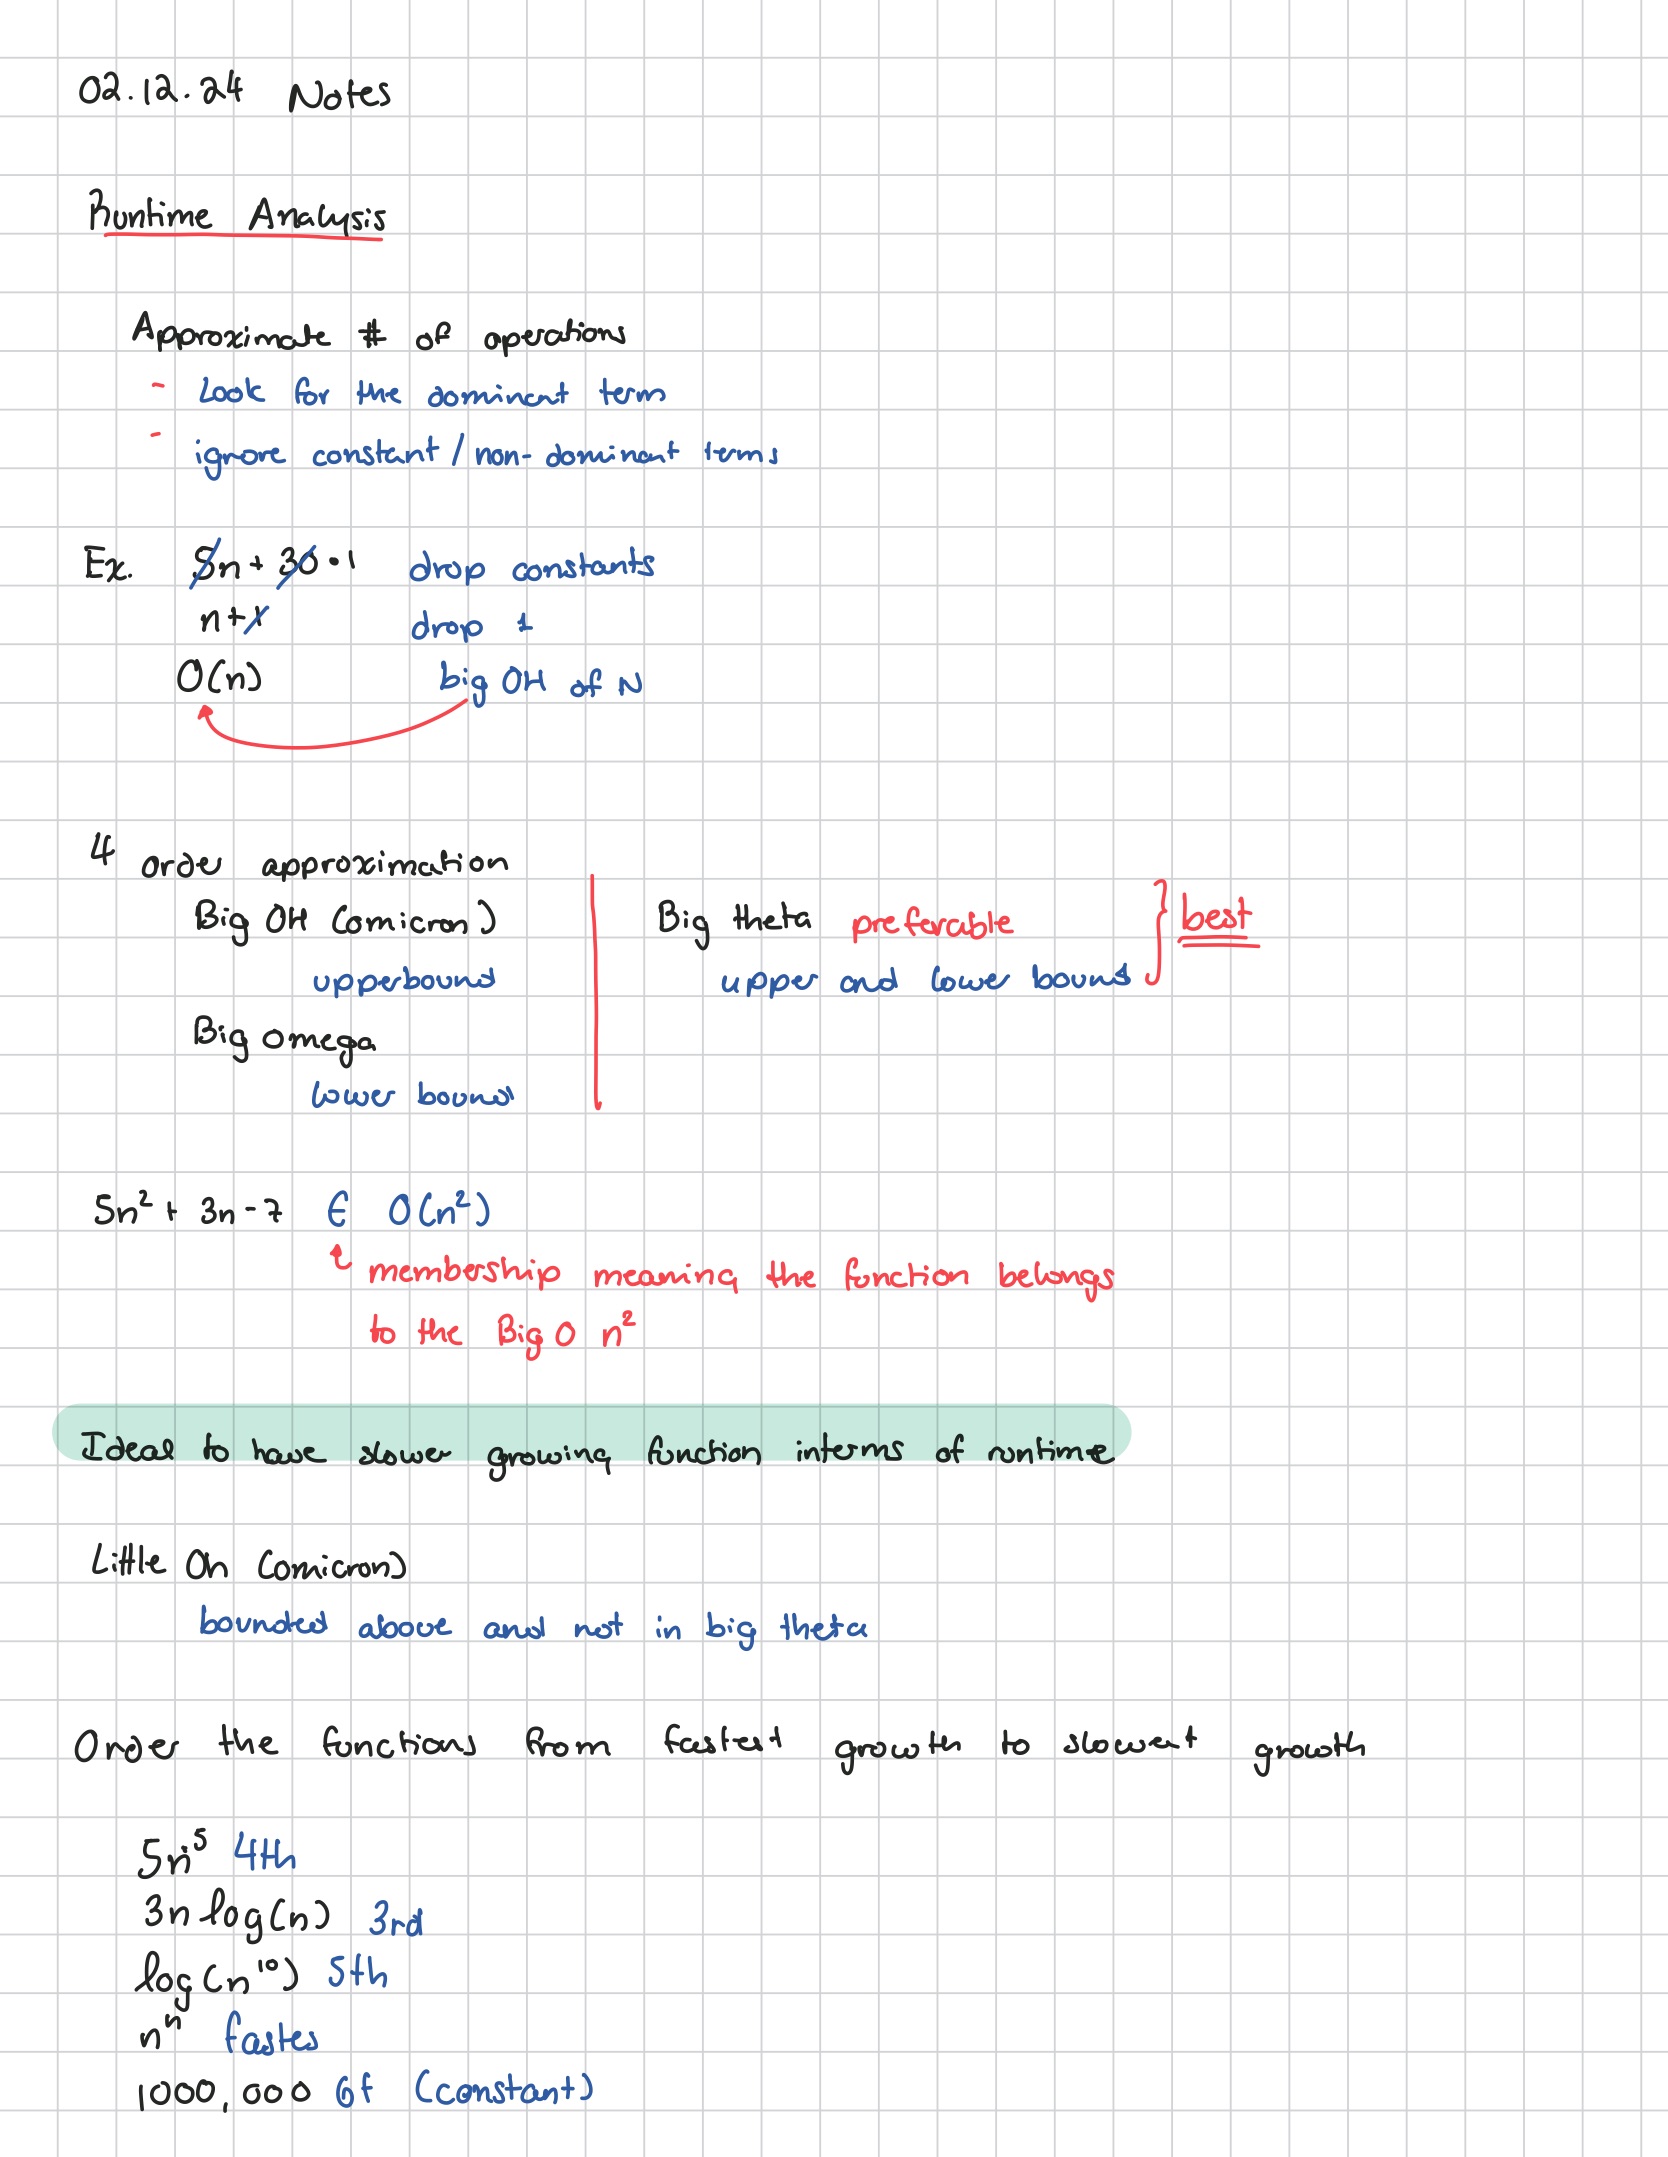 02.12.24 Notes
Runtime Analysis
Approximate # of operations
- Look for the dominant term
- ignore constant / non-dominant terms
Ex. 5n + 30 · 1 drop constants
n + 1 drop 1
O(n) big OH of N
4 order approximation
Big OH (omicron)
upperbound
Big omega
lower bound
Big theta preferable
upper and lower bound
} best
5n² + 3n - 7 ∈ O(n²)
membership meaning the function belongs
to the Big O n²
Ideal to have slower growing function interms of runtime
Little Oh (omicron)
bounded above and not in big theta
Order the functions from fastest growth to slowest growth
5n⁵ 4th
3n log(n) 3rd
log(n¹⁰) 5th
nⁿ fastes
1000,000 6t (constant)